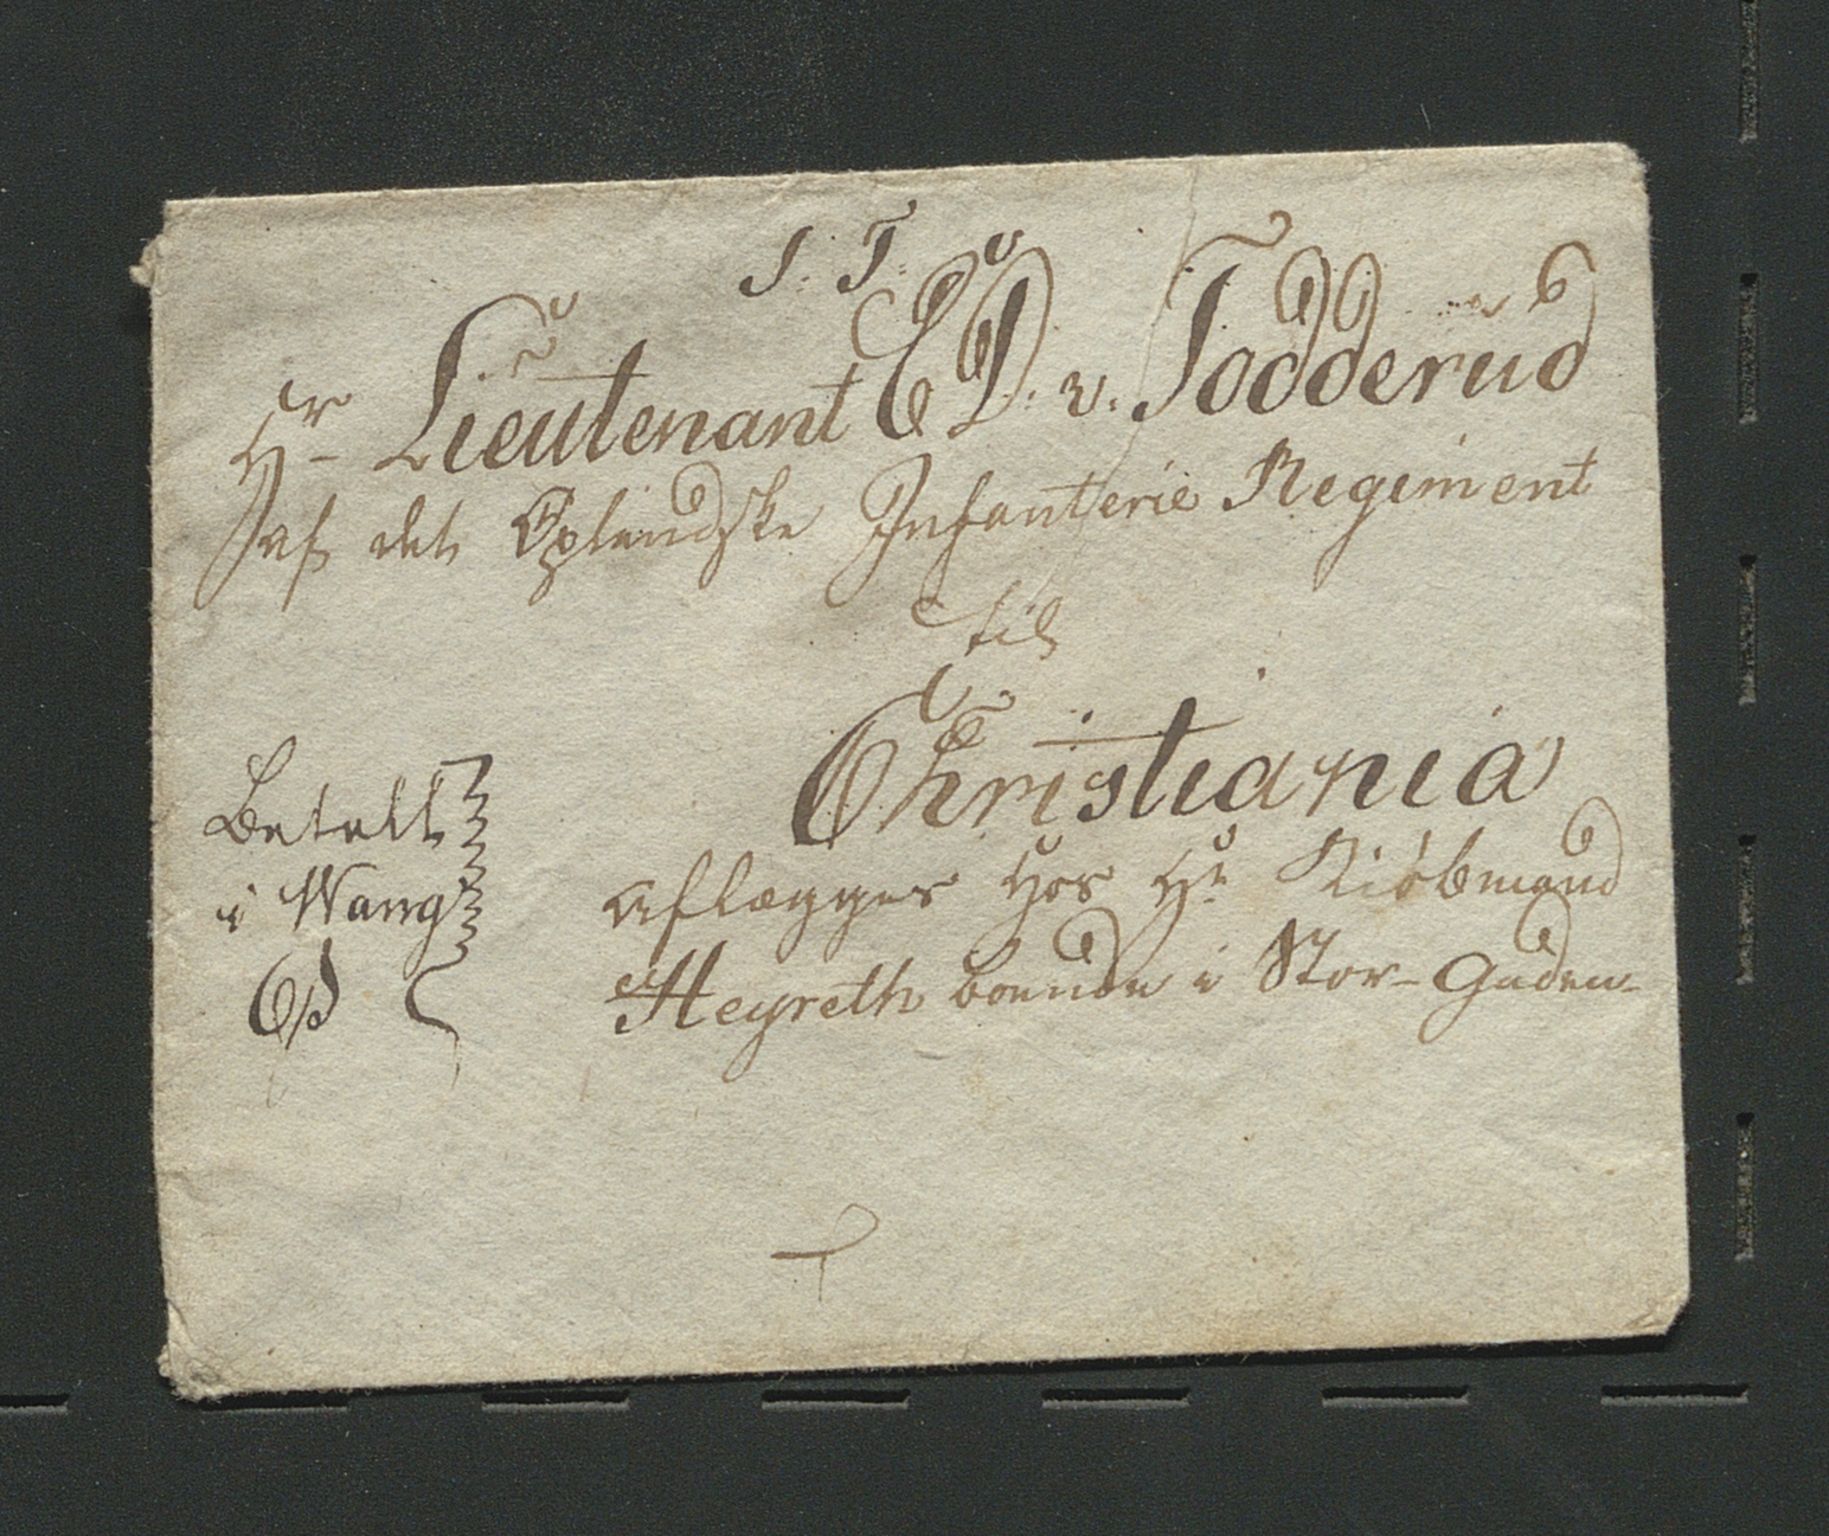 S. T.
Hr Lieutenant E D. v. Todderud
af det Oplandske Infanterie Regiment
til
Christiania
Betalt
i Wang
6 s
aflægges hos Hr Kiöbmand
Heyreth boende i Stor-Gaden